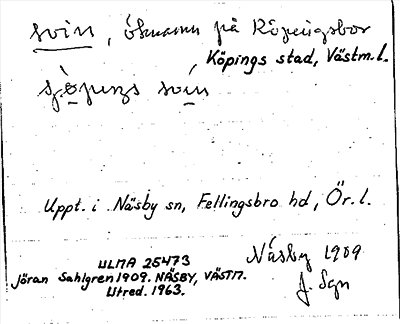 svin, öknamn på Köpingsbor
Köpings stad, Västm.l.
svin
Uppt. i Näsby sn, Fellingsbro hd, Ör. l.
ULMA 25473
Näsby 1909
Jöran Sahlgren 1909. NÄSBY, VÄSTM.
Utred. 1963.
J. Sgn